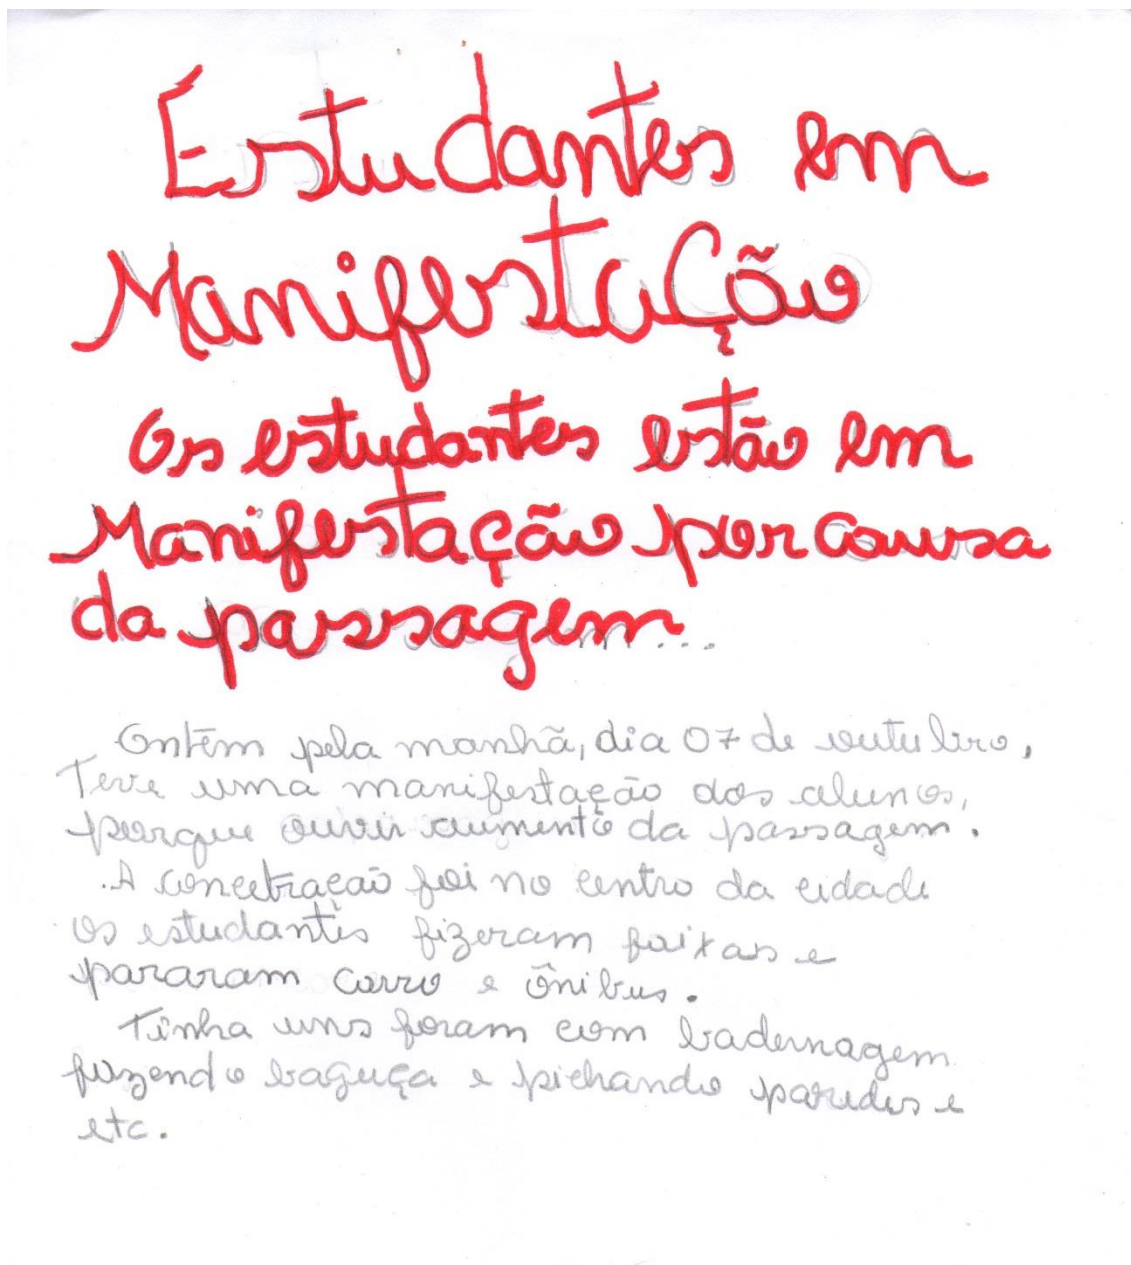 Éstudantes em
ManifestaÇão
Os estudantes estão em
Manifestação por causa
da passagem...
Ontêm pela manhã, dia 07 de outubro,
Teve uma manifestação dos alunos,
porque ouvir aumento da passagem.
A concetração foi no centro da cidade
os estudantes fizeram faixas e
pararam carro e ônibus.
Tinha uns foram com badernagem
fazendo baguça e pichando paredes e
etc.